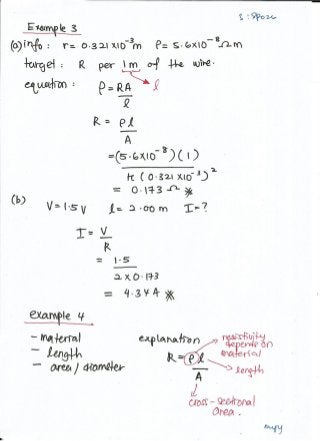 S: SPOZC
Example 3
(a) info: r = 0.321 x10⁻³m ρ = 5.6x10⁻⁸ Ωm
target: R per 1m of the wire.
equation: ρ = RA/l → l
R = ρl/A
= (5.6x10⁻⁸)(1) / π(0.321 x10⁻³)²
= 0.173 Ω ※
(b) V = 1.5 V l = 2.00 m I = ?
I = V/R
= 1.5 / 2 x 0.173
= 4.34 A ※
example 4
- material
- length
- area / diameter
explanation
R = ρl/A
resistivity
depends on
material
length
cross-sectional
area.